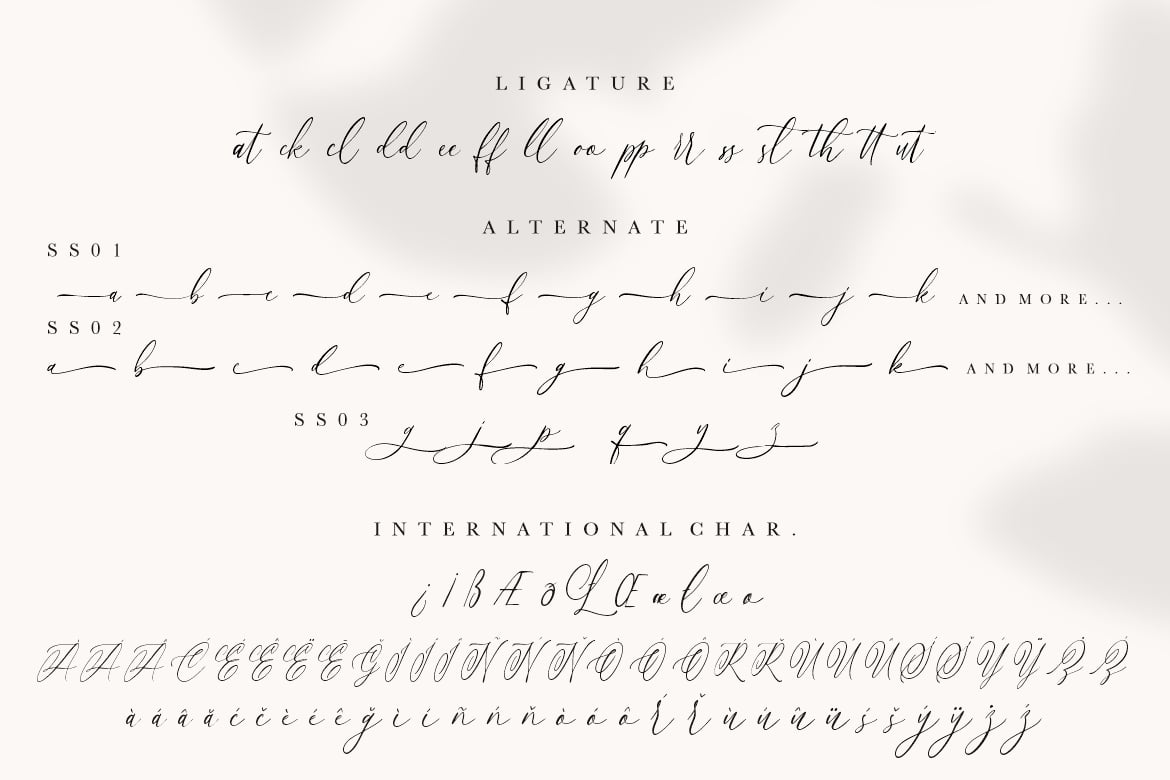 LIGATURE
at ck cl dd ee ff ll oo pp rr ss st th tt ut
ALTERNATE
SS01
a b c d e f g h i j k AND MORE...
SS02
a b c d e f g h i j k AND MORE...
SS03
g j p q y z
INTERNATIONAL CHAR.
à á â ã ć č è é ê ğ ì í ñ ń ň ò ó ô ŕ ř ù ú û ü ś š ý ÿ ż ź